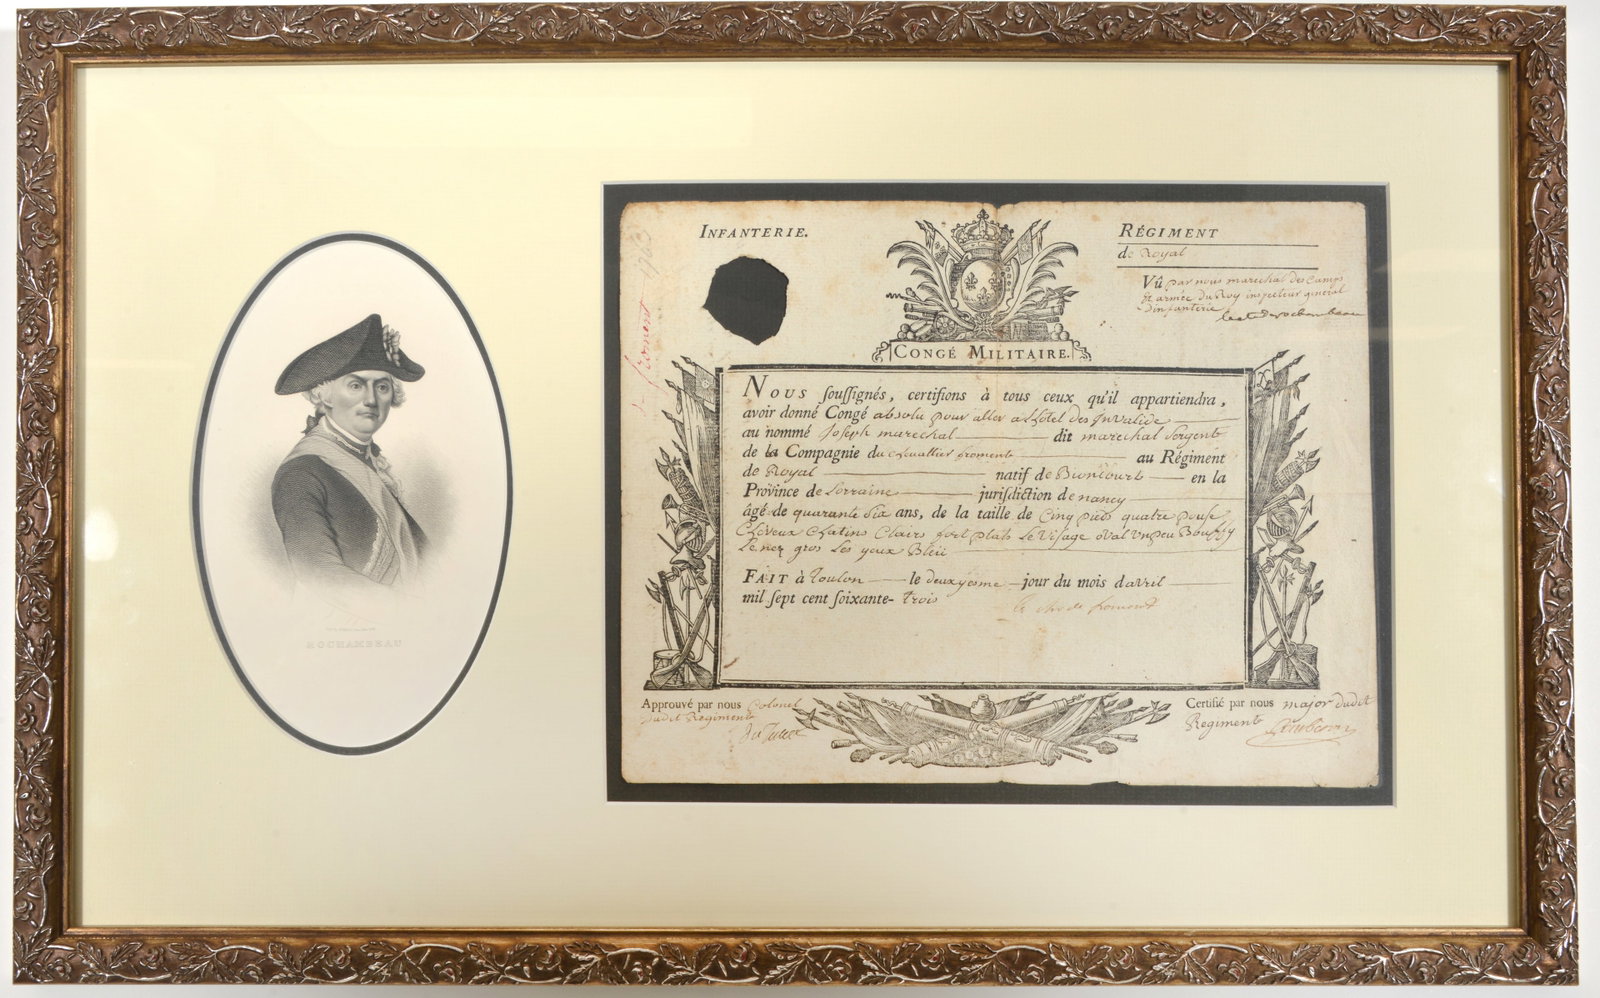 ROCHAMBEAU
INFANTERIE.
RÉGIMENT
de Royal
Vû par nous marechal des Camps
et armée Du Roy inspecteur general
Dinfanterie
le cte de rochambeau
froment 1763
CONGÉ MILITAIRE.
NOUS soussignés, certifions à tous ceux qu'il appartiendra,
avoir donné Congé absolu pour aller a Lhôtel des Invalide
au nommé Joseph marechal dit marechal Sergent
de la Compagnie du chevallier froment au Régiment
de Royal natif de Bioncourt en la
Province de Lorraine jurisdiction de nancy
âgé de quarante Six ans, de la taille de Cinq pieds quatre pouse
Cheveux Chatins Clairs fort plats Le Visage oval un peu Bouffy
Le nez gros Les yeux Bleü
FAIT à Toulon le deuxyesme jour du mois davril
mil sept cent soixante- trois
le cher de froment
Approuvé par nous Colonel
dudit Regiment
Certifié par nous major dudit
Regiment